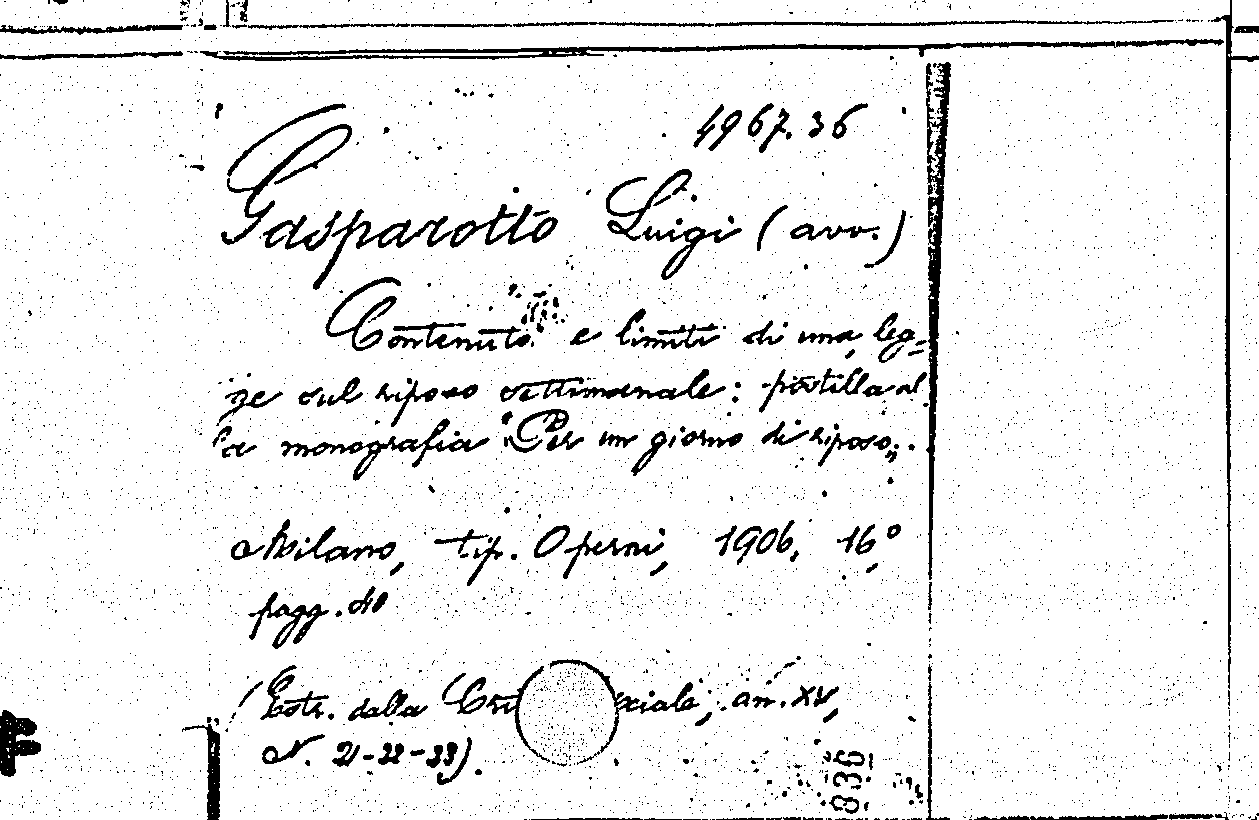 4967.36
Gasparotto Luigi (avv.)
Contenuto e limiti di una leg=
ge sul riposo settimanale: postilla al
la monografia "Per un giorno di riposo".
Milano, tip. Operai, 1906, 16°,
pagg.
(Estr. dalla Cri ciale, an. XV,
N. 21-22-23).
836